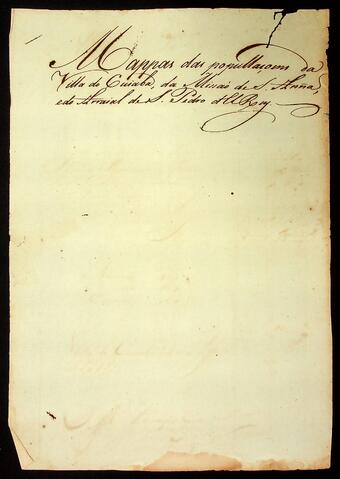 Mappas das popullaçoens da
Villa do Cuiabá, da Minas de S. Anna,
e do Arraial de S. Pedro d'El Rey